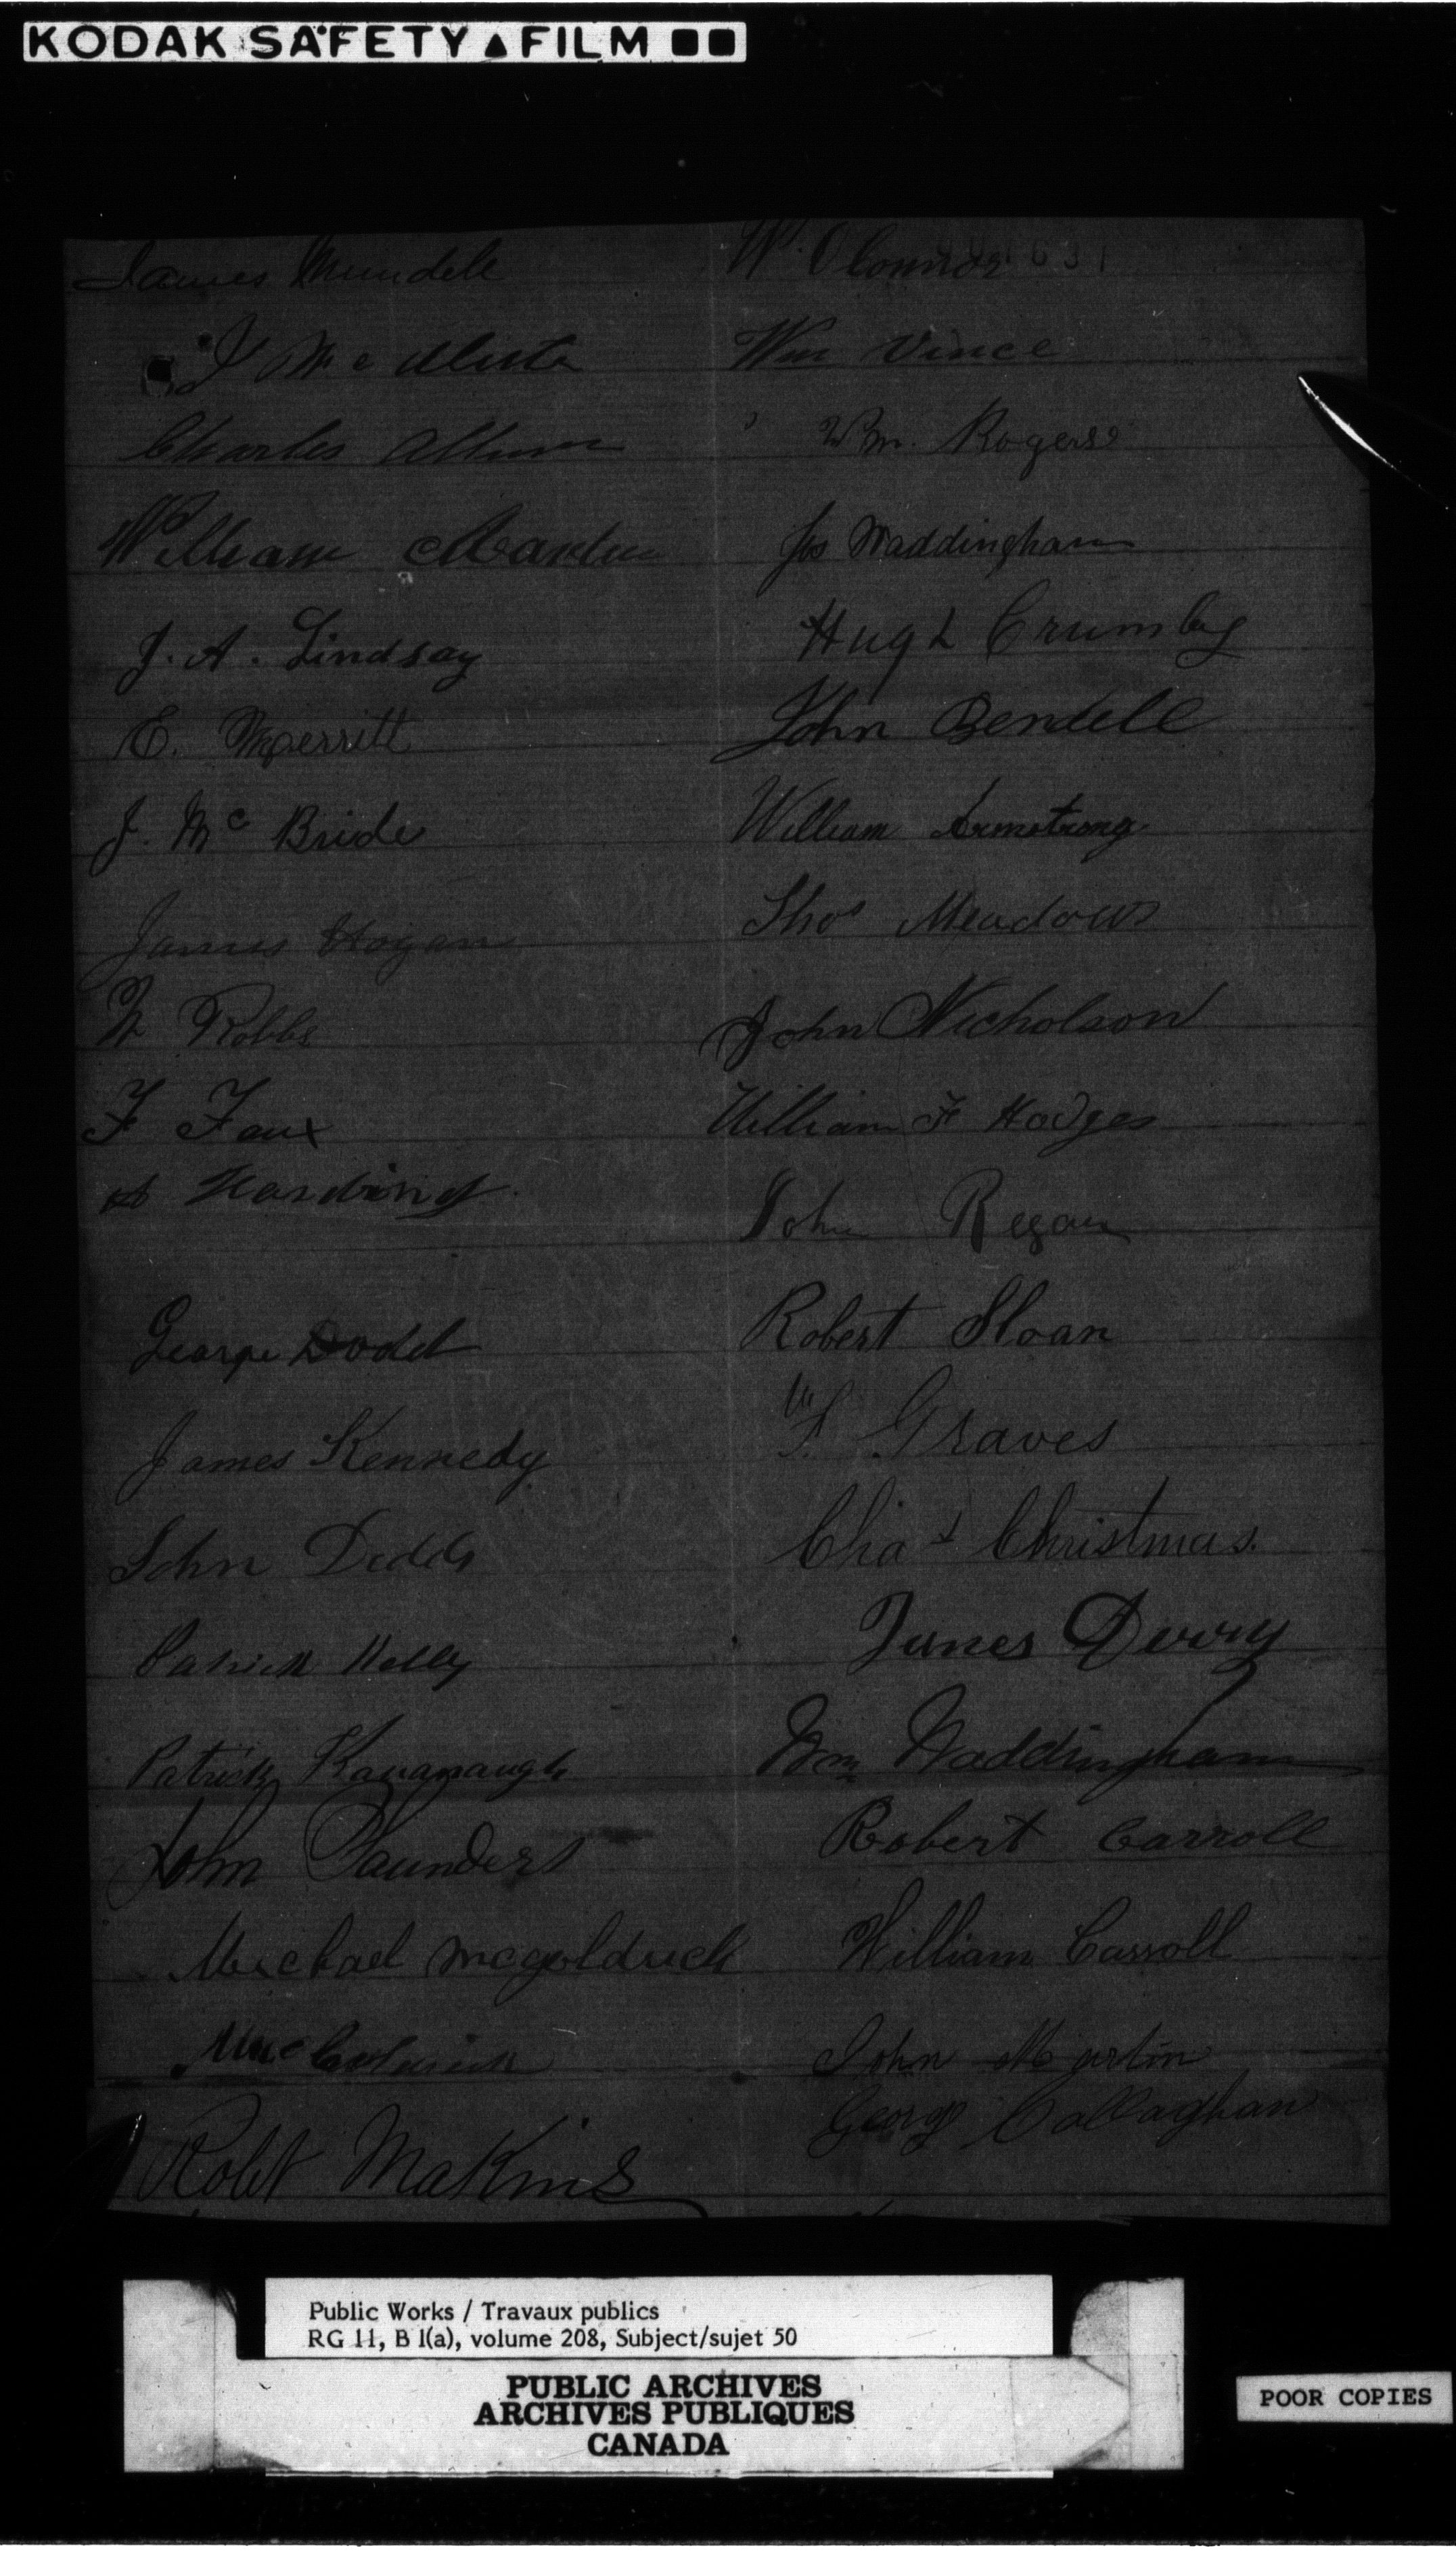 KODAK SAFETY FILM
James Mundell
J Mc
Charles
William Martin
J. A. Lindsay
E. Merritt
J. Mc Bride
James Hogan
W Robbs
F Faux
Harding
George Dodd
James Kennedy
John Dodds
Patrick Kelly
Patrick Kavanaugh
John Saunders
Michael mcgoldrick
Robt Makins
W. OConnor
Wm Vince
Wm. Rogers
Jos Waddingham
Hugh Crumby
John Bendell
William Armstrong
Thos Meadows
John Nicholson
William F Hodges
John Regan
Robert Sloan
Graves
Chas Christmas.
James
Wm Waddingham
Robert Carroll
William Carroll
John Martin
George Callaghan
Public Works / Travaux publics
RG 11, B 1(a), volume 208, Subject/sujet 50
PUBLIC ARCHIVES
ARCHIVES PUBLIQUES
CANADA
POOR COPIES